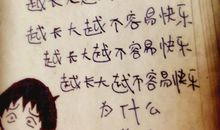 越长大越不容易快乐
越长大越不容易快乐
越长大越不容易快乐
越长大越不容易快乐
为什么